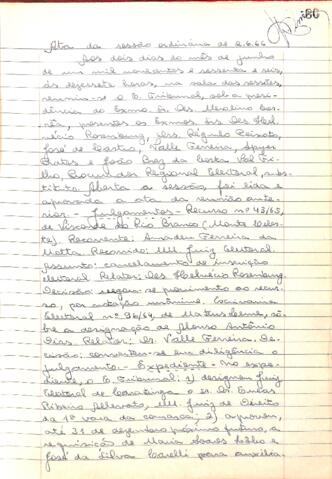 60
Ata da sessão ordinária de 2.6.66
Aos dois dias do mês de junho
de um mil novecentos e sessenta e seis,
às dezessete horas, na sala das sessões,
reuniu-se o E. Tribunal, sob a presi-
dência do Exmo. Sr. Des. Merolino Cor-
rêa, presentes os Exmos. Srs. Des. Hel-
vécio Rosenburg, Drs. Régulo Peixoto,
José de Castro, Valle Ferreira,
e João Braz da Costa Val Fi-
lho, Procurador Regional Eleitoral, subs-
tituto. Aberta a sessão, foi lida e
aprovada a ata da reunião ante-
rior. - Julgamentos - Recurso nº 43/65,
de Visconde do Rio Branco
Recorrente: Amadeu Ferreira da
Motta. Recorrido: MM. Juiz Eleitoral.
Assunto: cancelamento de inscrição
eleitoral. Relator: Des. Helvécio Rosenburg.
Decisão: negou-se provimento ao recur-
so, por votação unânime. Escrivania
Eleitoral nº 96/64, de Mateus Leme, sô-
bre a designação de Afonso Antônio
Dias. Relator: Dr. Valle Ferreira. De-
cisão: converteu-se em diligência o
julgamento. - Expediente - No expe-
diente, o E. Tribunal: 1) designou Juiz
Eleitoral de Caratinga o sr. Dr.
Ribeiro MM. Juiz de Direito
da 1ª vara da comarca; 2) aprovou,
até 31 de dezembro próximo futuro, a
requisição de Maria
José da Silva para auxilia-